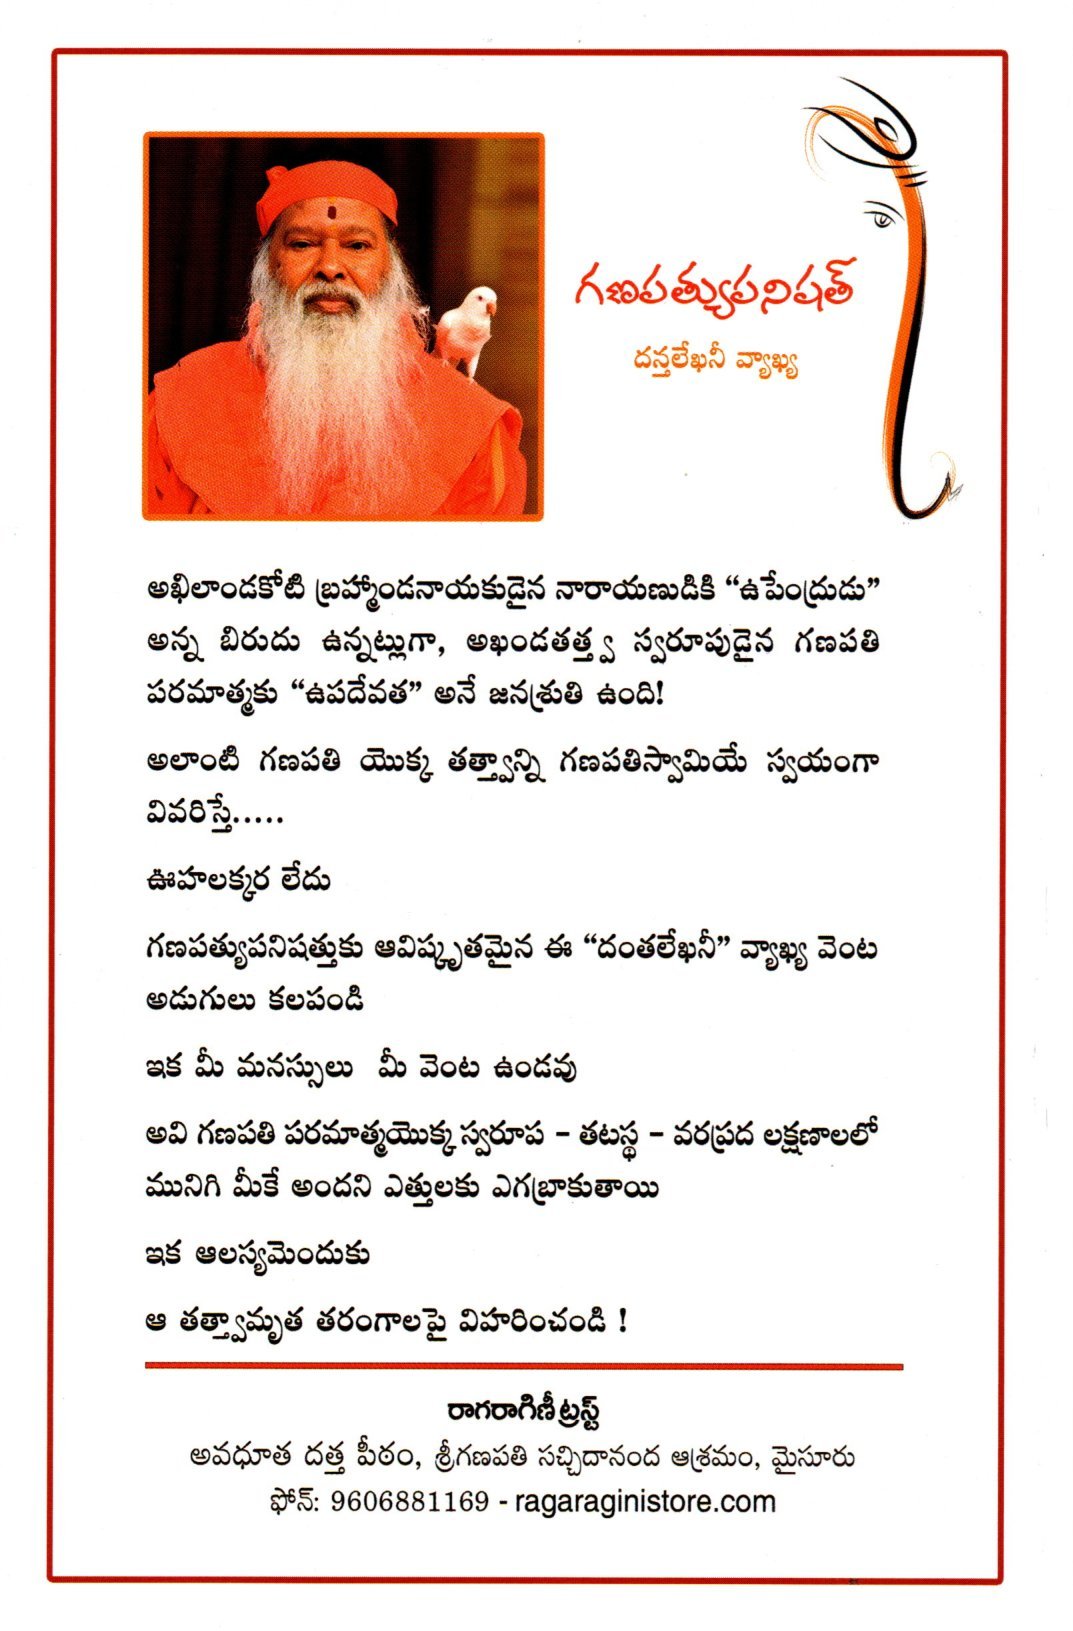 గణపత్యుపనిషత్
దన్తలేఖనీ వ్యాఖ్య
అఖిలాండకోటి బ్రహ్మాండనాయకుడైన నారాయణుడికి “ఉపేంద్రుడు”
అన్న బిరుదు ఉన్నట్లుగా, అఖండతత్త్వ స్వరూపుడైన గణపతి
పరమాత్మకు “ఉపదేవత” అనే జనశ్రుతి ఉంది!
అలాంటి గణపతి యొక్క తత్త్వాన్ని గణపతిస్వామియే స్వయంగా
వివరిస్తే.....
ఊహలక్కర లేదు
గణపత్యుపనిషత్తుకు ఆవిష్కృతమైన ఈ “దంతలేఖనీ” వ్యాఖ్య వెంట
అడుగులు కలపండి
ఇక మీ మనస్సులు మీ వెంట ఉండవు
అవి గణపతి పరమాత్మయొక్క స్వరూప – తటస్థ – వరప్రద లక్షణాలలో
మునిగి మీకే అందని ఎత్తులకు ఎగబ్రాకుతాయి
ఇక ఆలస్యమెందుకు
ఆ తత్త్వామృత తరంగాలపై విహరించండి !
రాగరాగిణీట్రస్ట్
అవధూత దత్త పీఠం, శ్రీగణపతి సచ్చిదానంద ఆశ్రమం, మైసూరు
ఫోన్: 9606881169 - ragaraginistore.com